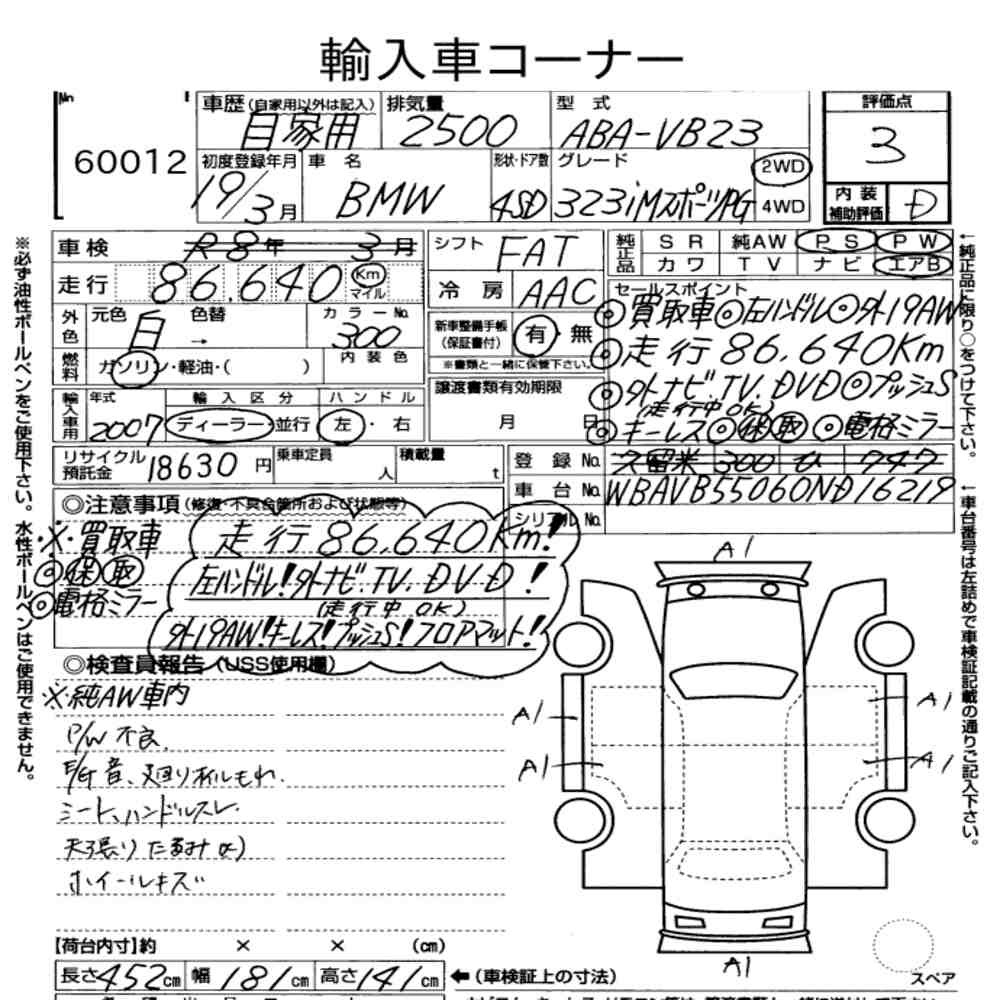 輸入車コーナー
No
60012
車歴(自家用以外は記入)
自家用
排気量
2500
型 式
ABA-VB23
評価点
3
初度登録年月
19/3月
車 名
BMW
形状・ドア数
4SD
グレード
323iMスポーツPG
2WD
4WD
内装
補助評価
D
車検
R8年 3月
シフト
FAT
純正品
SR 純AW PS PW
カワ TV ナビ エアB
走行
86,640
Km
マイル
冷房
AAC
セールスポイント
◎買取車◎左ハンドル◎外19AW
◎走行86,640Km
◎外ナビ.TV.DVD◎プッシュS
(走行中OK)
◎キーレス◎保取◎電格ミラー
外色
元色
白
色替
→
カラーNo.
300
新車整備手帳
(保証書付)
有・無
※書類と一緒に保管下さい。
燃料
ガソリン・軽油・( )
内装色
譲渡書類有効期限
月 日
輸入車用
年式
2007
輸入区分
ディーラー 並行
ハンドル
左・右
リサイクル
預託金
18630円
乗車定員
人
積載量
t
登録No.
久留米 300 ひ 747
車台No.
WBAVB55060ND16219
シリアルNo.
◎注意事項(修復・不具合箇所および状態等)
※買取車
◎保取
◎電格ミラー
走行86,640Km!
左ハンドル!外ナビ.TV.DVD!
(走行中OK)
外19AW!キーレス!プッシュS!フロアマット!
◎検査員報告(USS使用欄)
※純AW車内
P/W不良
E/G音、廻りオイルもれ.
シート、ハンドルスレ
天張りたるみ有)
ホイールキズ
A1
A1
A1
A1
A1
A1
【荷台内寸】約 × × (cm)
長さ452cm
幅181cm
高さ141cm
←(車検証上の寸法)
スペア
※必ず油性ボールペンをご使用下さい。水性ボールペンはご使用できません。
←純正品に限り○をつけて下さい。
←車台番号は左詰めで車検証記載の通りご記入下さい。